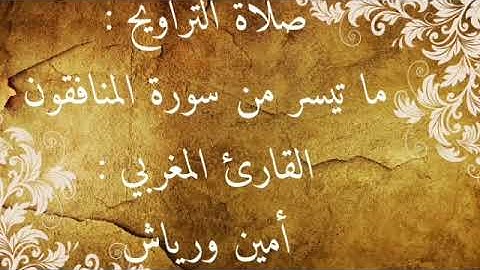 صلاة التراويح :
ما تيسر من سورة المنافقون
القارئ المغربي :
أمين ورياش